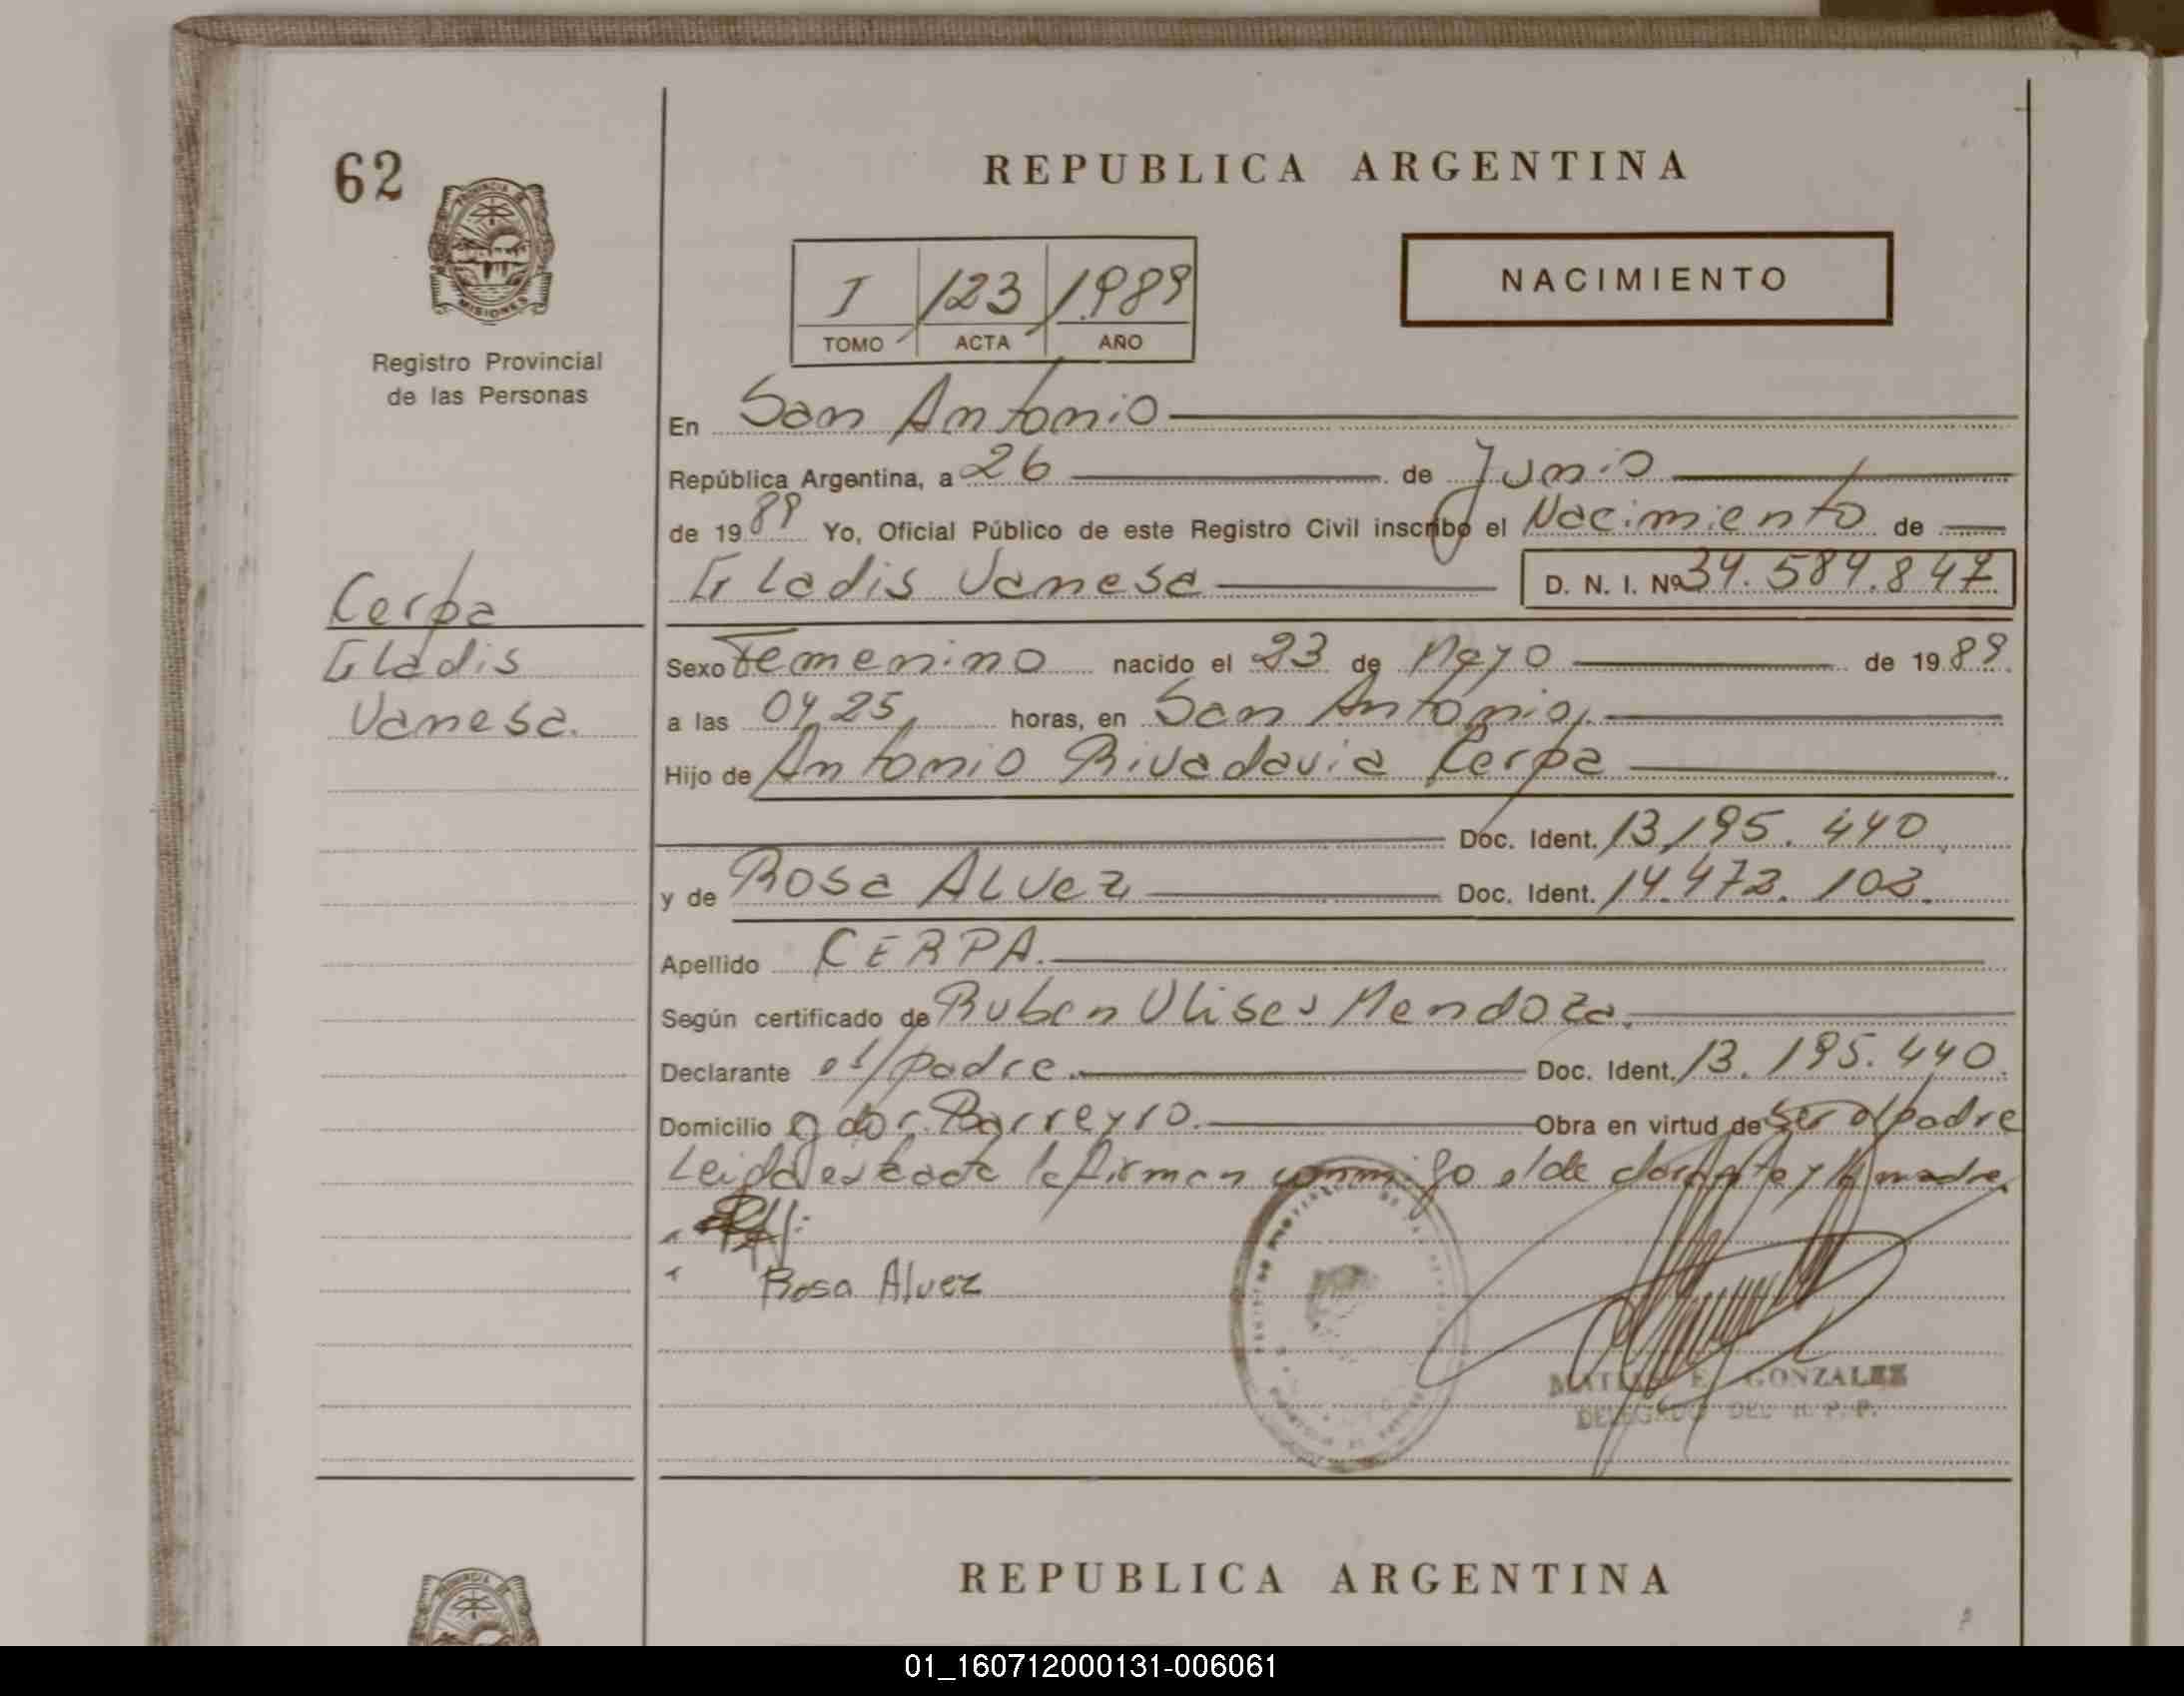 62
REPUBLICA ARGENTINA
PROVINCIA DE
MISIONES
Registro Provincial
de las Personas
NACIMIENTO
I 123 1989
TOMO ACTA AÑO
En San Antonio
República Argentina, a 26 de Junio
de 1989 Yo, Oficial Público de este Registro Civil inscribo el Nacimiento de
Gladis Vanesa D. N. I. Nº 34.584.847
Cerpa
Gladis
Vanesa.
Sexo Femenino nacido el 23 de Mayo de 1989
a las 04,25, horas, en San Antonio,
Hijo de Antonio Rivadavia Cerpa
Doc. Ident. 13,195.440,
y de Rosa ALvez Doc. Ident. 14.472.102.
Apellido CERPA.
Según certificado de Ruben Ulises Mendoza.
Declarante el padre. Doc. Ident. 13.195.440.
Domicilio gdor. Barreyro. Obra en virtud de ser el padre
Leida esta acta la firman conmigo el declarante y la madre
Rosa Alvez
E. GONZALEZ
DELEGADO DEL R. P. P.
REPUBLICA ARGENTINA
PROVINCIA DE
01_160712000131-006061